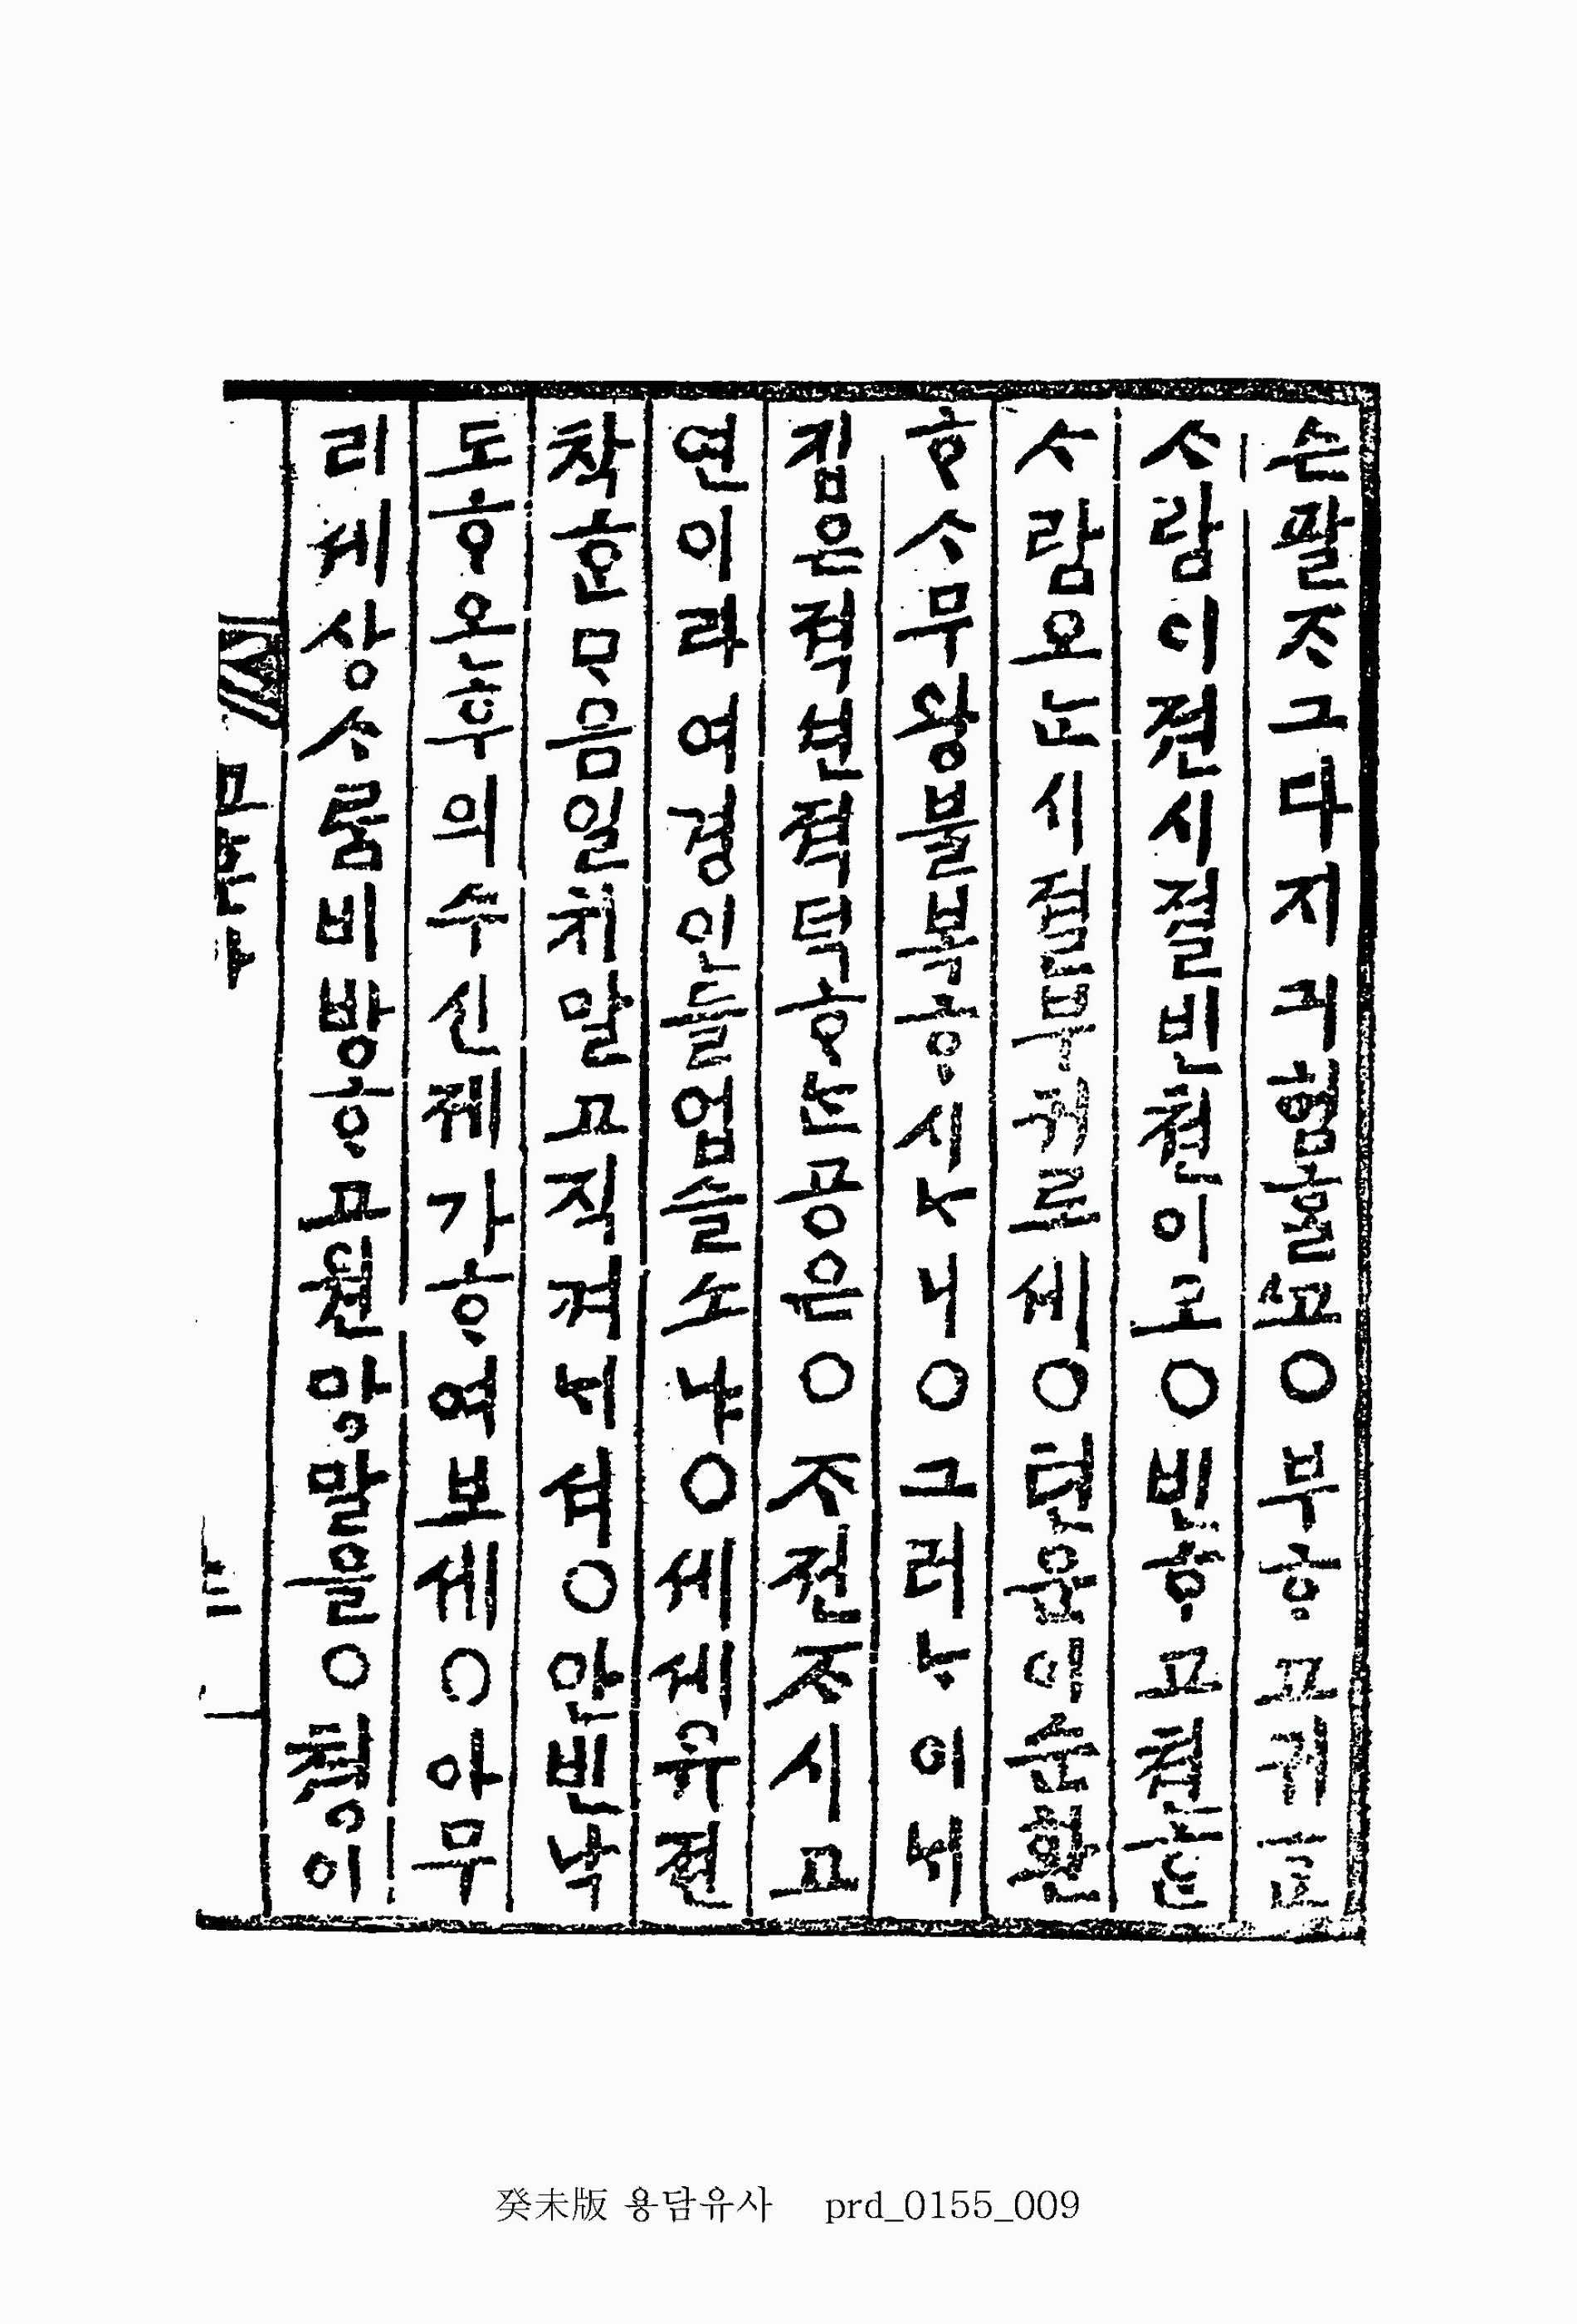 슨팔ᄌᆞ그다지긔험ᄒᆞᆯᄭᅩ○부ᄒᆞ고귀ᄒᆞᆫ
ᄉᆞ람이젼시졀빈쳔이로○빈ᄒᆞ고쳔ᄒᆞᆫ
ᄉᆞ람오ᄂᆞᆫ시졀부귀로세○텬운이슌환
ᄒᆞᄉᆞ무왕불복ᄒᆞ시ᄂᆞ니○그러ᄂᆞ이ᄂᆡ
집은젹션젹덕ᄒᆞᄂᆞᆫ공은○ᄌᆞ젼ᄌᆞ시고
연이라여경인들업슬소냐○세세유젼
착ᄒᆞᆫᄆᆞ음일치말고직켜ᄂᆡ셔○안빈낙
도ᄒᆞ온후의수신졔가ᄒᆞ여보세○아무
리세상ᄉᆞᄅᆞᆷ비방ᄒᆞ고원망말을○쳥이
癸未版 용담유사 prd_0155_009